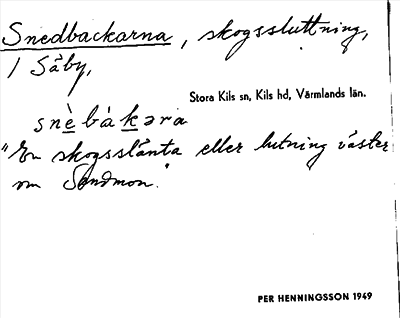 Snedbackarna, skogssluttning,
i Säby,
Stora Kils sn, Kils hd, Värmlands län.
snèbàkəra
"En skogsslänta eller lutning väster
om Sandmon."
PER HENNINGSSON 1949